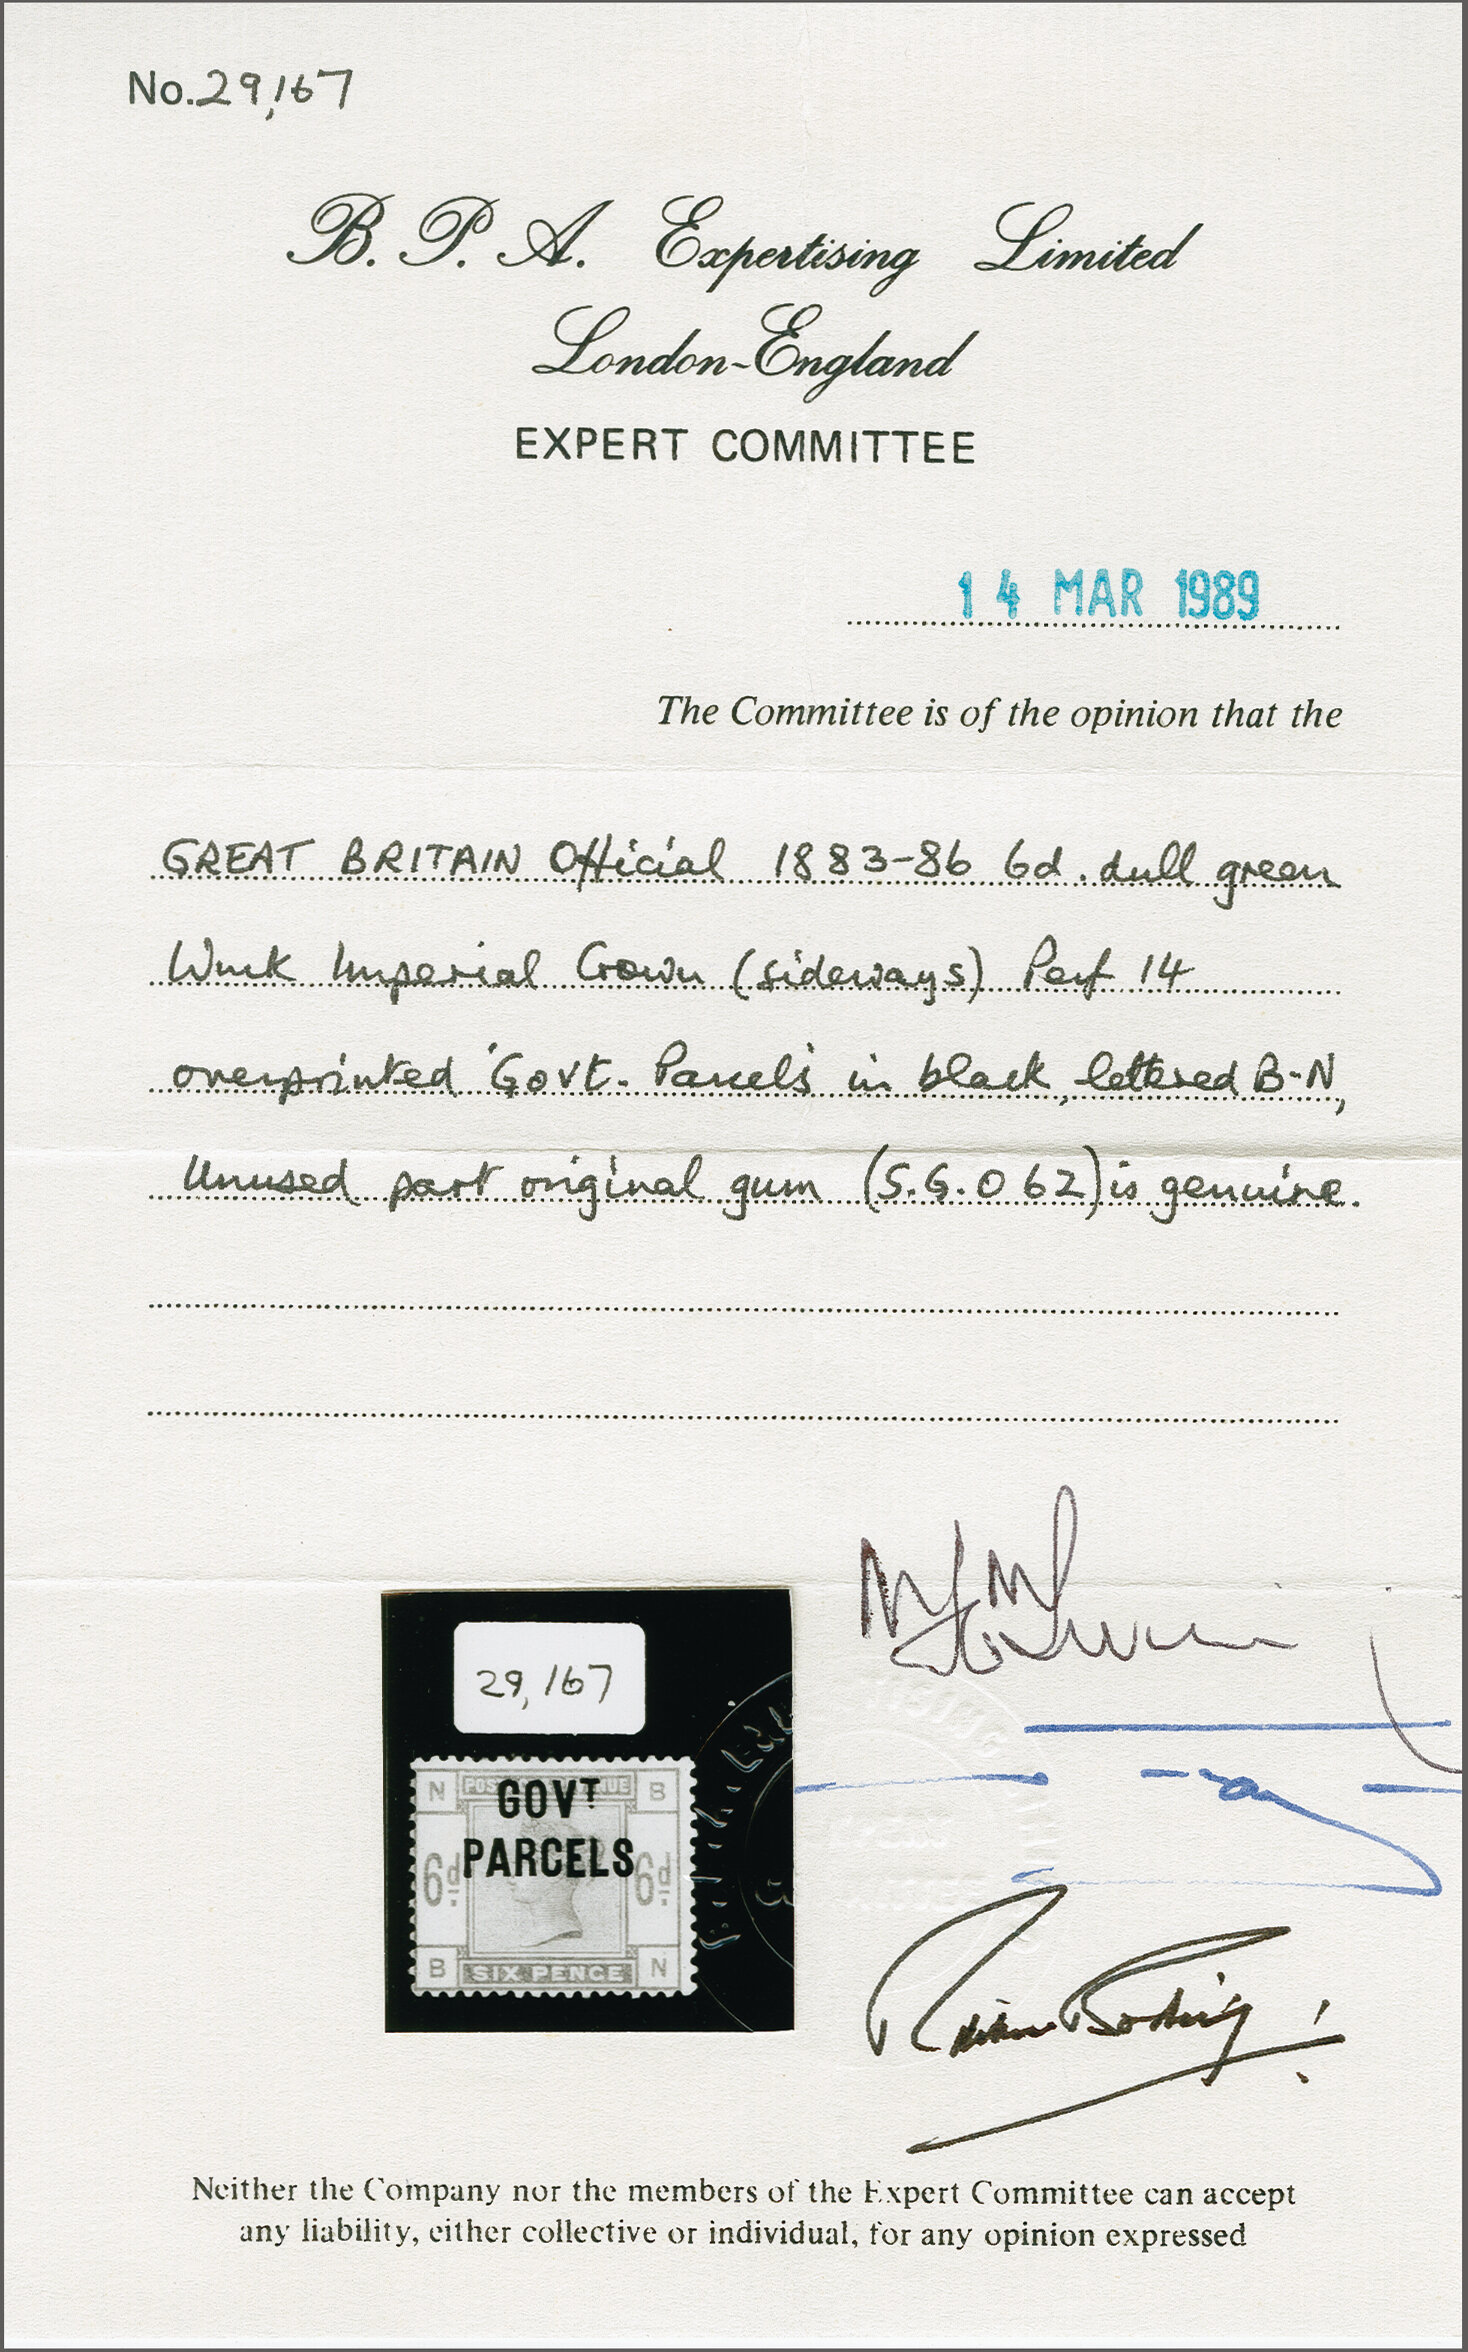 No. 29,167
B. P. A. Expertising Limited
London-England
EXPERT COMMITTEE
14 MAR 1989
The Committee is of the opinion that the
GREAT BRITAIN Official 1883-86 6d. dull green
Wmk Imperial Crown (sideways) Perf 14
overprinted 'Govt. Parcels' in black, lettered B-N,
Unused part original gum (S.G. O 62) is genuine.
29,167
N B
GOVT
PARCELS
6d 6d
B SIX PENCE N
Neither the Company nor the members of the Expert Committee can accept
any liability, either collective or individual, for any opinion expressed